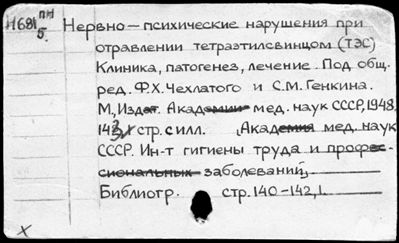 Н681 пн
5.
Нервно-психические нарушения при
отравлении тетраэтилсвинцом (ТЭС)
Клиника, патогенез, лечение. Под общ.
ред. Ф.Х. Чехлатого и С.М. Генкина.
М, Издат. Академии мед. наук СССР, 1948.
стр. с илл. Академия мед. наук
СССР. Ин-т гигиены труда и профес-
сиональных заболеваний.
Библиогр. стр. 140-142,1.
х